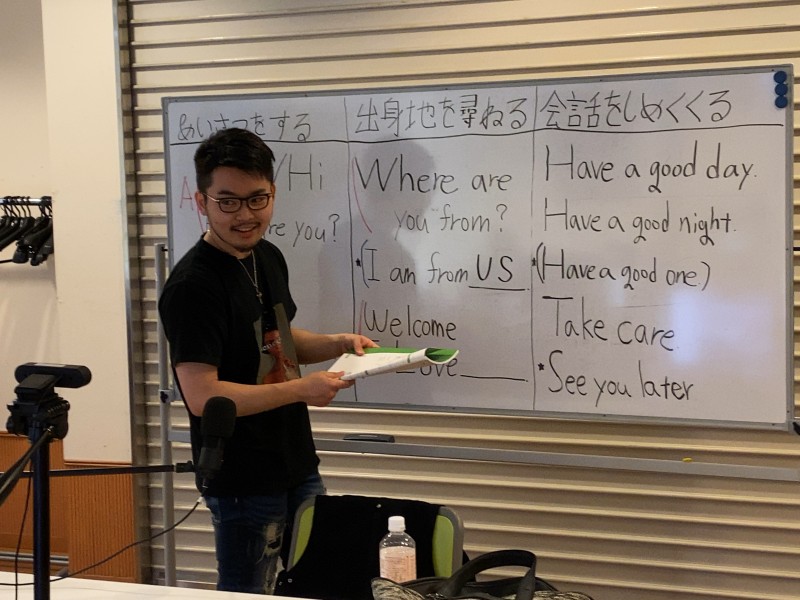 あいさつをする
Hi
re you?
出身地を尋ねる
Where are
you from?
*(I am from US
Welcome
ove
会話をしめくくる
Have a good day.
Have a good night.
*(Have a good one)
Take care
*See you later